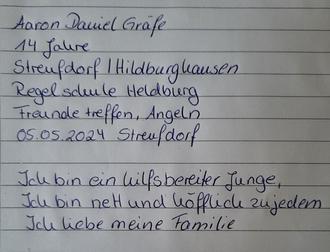 Aaron Daniel Gräfe
14 Jahre
Streufdorf / Hildburghausen
Regelschule Heldburg
Freunde treffen, Angeln
05.05.2024 Streufdorf
Ich bin ein hilfsbereiter Junge,
Ich bin nett und höfflich zu jedem
Ich liebe meine Familie